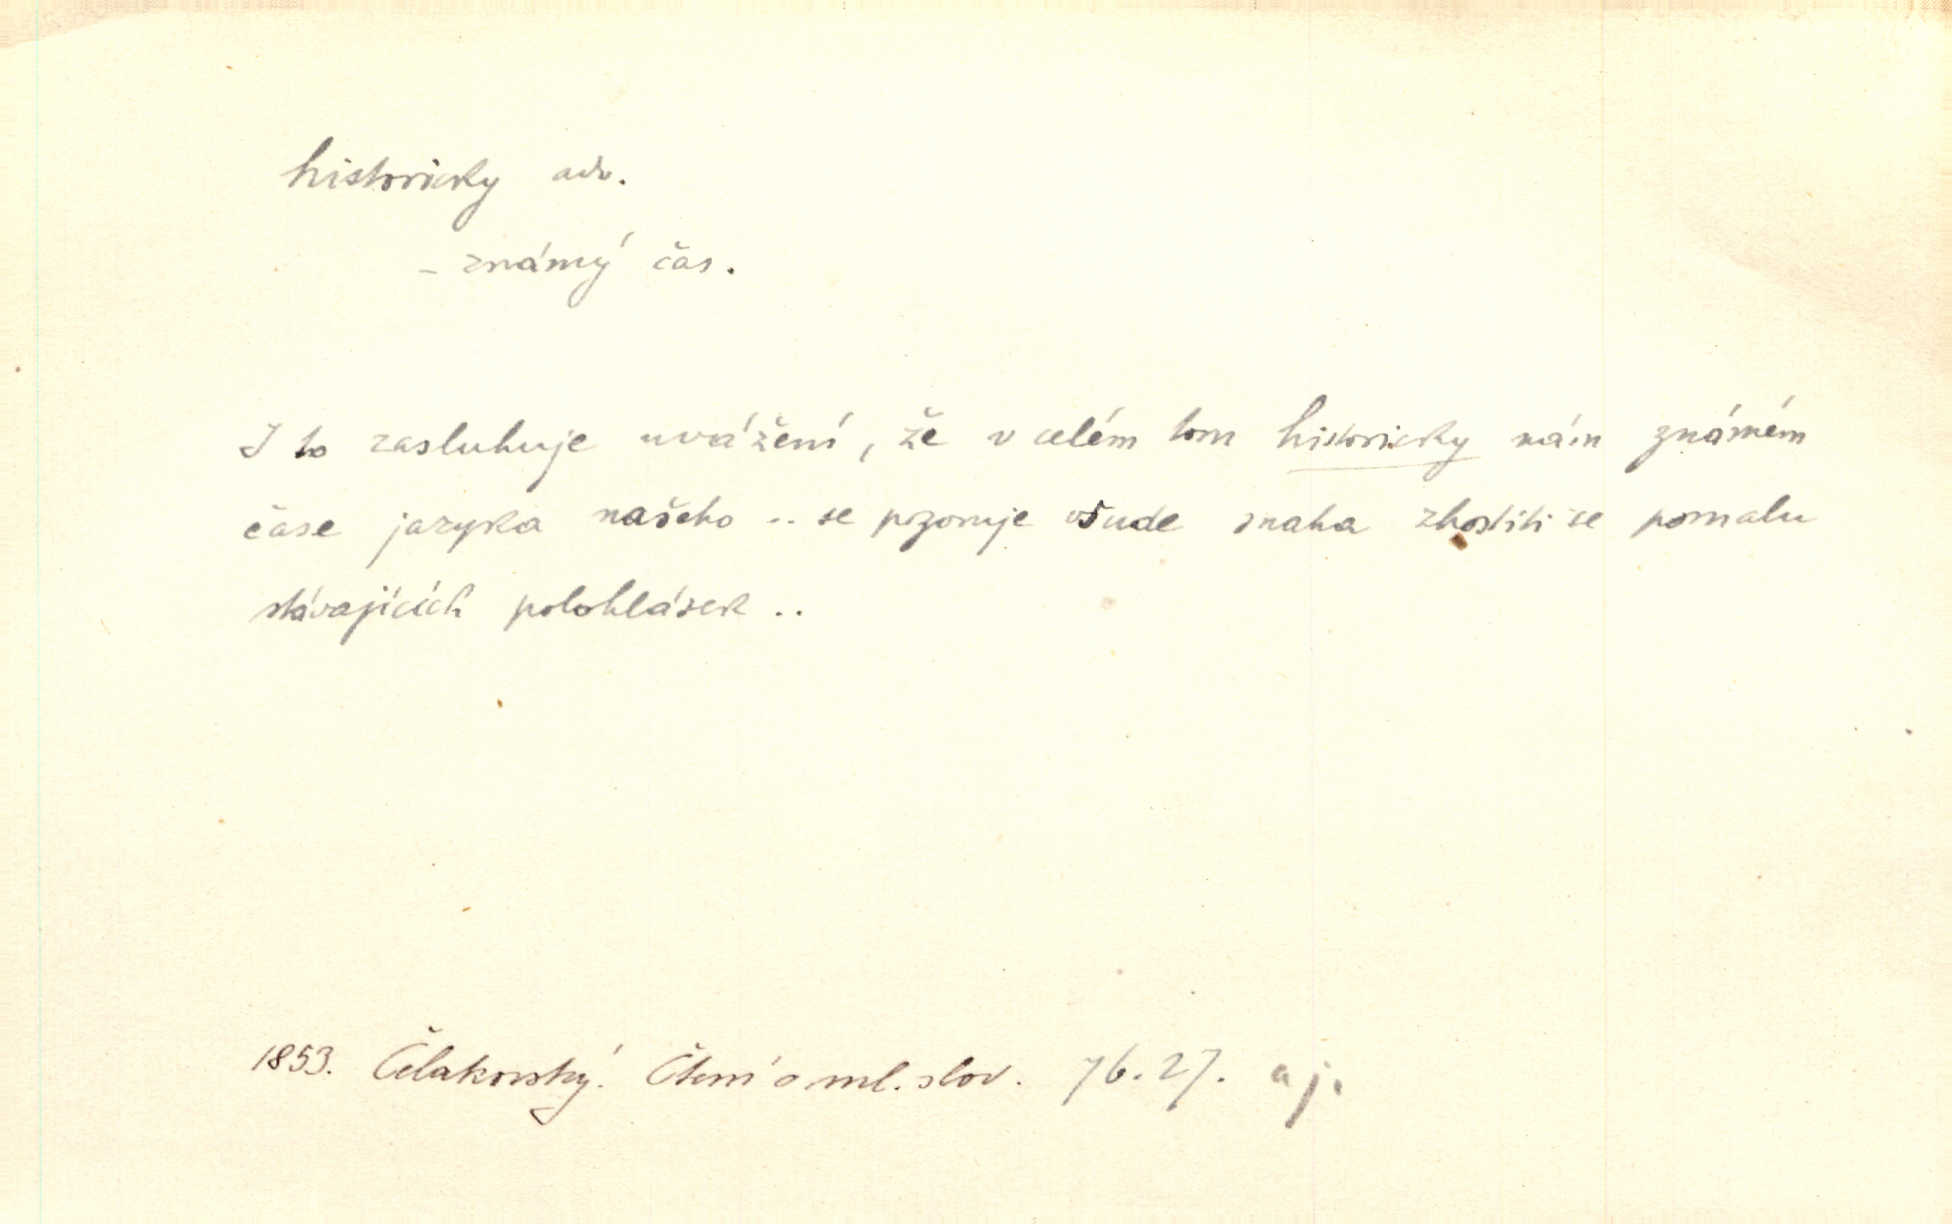 historicky adv.
- známý čas.
I to zasluhuje uvážení, že v celém tom historicky nám známém
čase jazyka našeho .. se pozoruje všude snaha zhostiti se pomalu
stávajících polohlásek ..
1853. Čelakovský. Čtení o ml. slov. 76.27. a j.